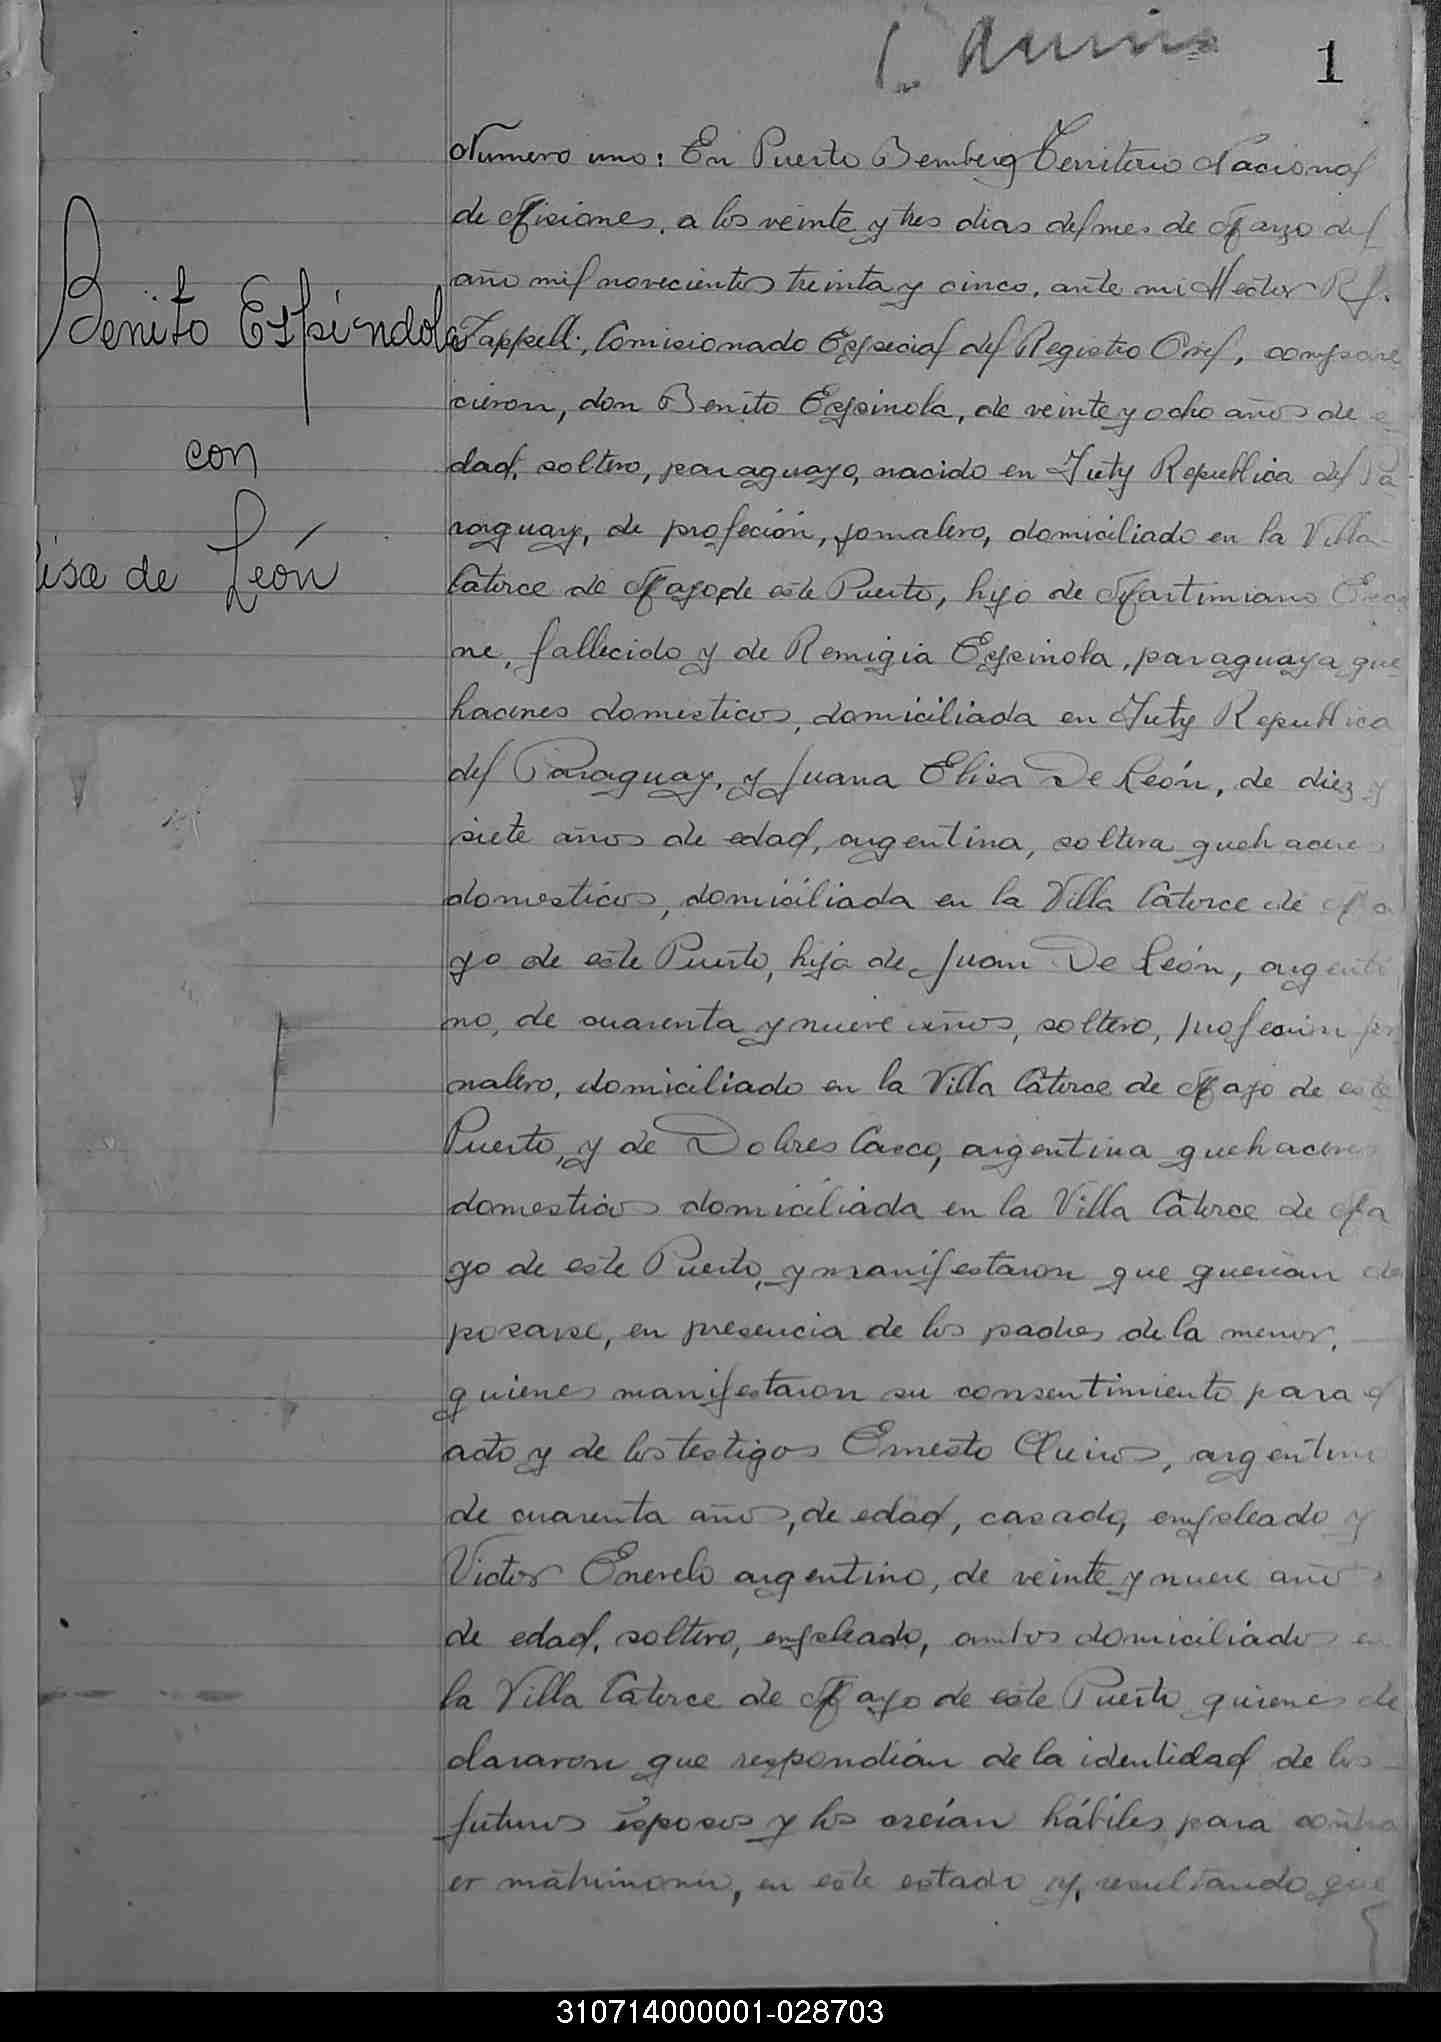 1
Numero uno: En Puerto Bemberg Territorio Nacional
de Misiones, a los veinte y tres dias del mes de Marzo del
año mil novecientos treinta y cinco, ante mi Hector R.
Benito Espíndola
Zappelli, Comisionado Especial del Registro Civil, compare
cieron, don Benito Espinola, de veinte y ocho años de e
con
dad, soltero, paraguayo, nacido en Yuty Republica del Pa
raguay, de profeción, jornalero, domiciliado en la Villa
isa de León
Catorce de Mayo de este Puerto, hijo de Martimiano
ne, fallecido y de Remigia Espinola, paraguaya que
haceres domesticos, domiciliada en Yuty Republica
del Paraguay, y Juana Elisa De León, de diez y
siete años de edad, argentina, soltera quehaceres
domesticos, domiciliada en la Villa Catorce de Ma
yo de este Puerto, hija de Juan De León, argenti
no, de cuarenta y nueve años, soltero, profesion jor
nalero, domiciliado en la Villa Catorce de Mayo de este
Puerto, y de Dolores Casco, argentina quehaceres
domesticos domiciliada en la Villa Catorce de Ma
yo de este Puerto, y manifestaron que querian des
posarse, en presencia de los padres de la menor,
quienes manifestaron su consentimiento para el
acto y de los testigos Ernesto Queiros, argentino
de cuarenta años, de edad, casado, empleado y
Victor argentino, de veinte y nueve años
de edad, soltero, empleado, ambos domiciliados en
la Villa Catorce de Mayo de este Puerto quienes de
clararon que respondián de la identidad de los
futuros esposos y los creían hábiles para contra
er matrimonio, en este estado y, resultando que
310714000001-028703